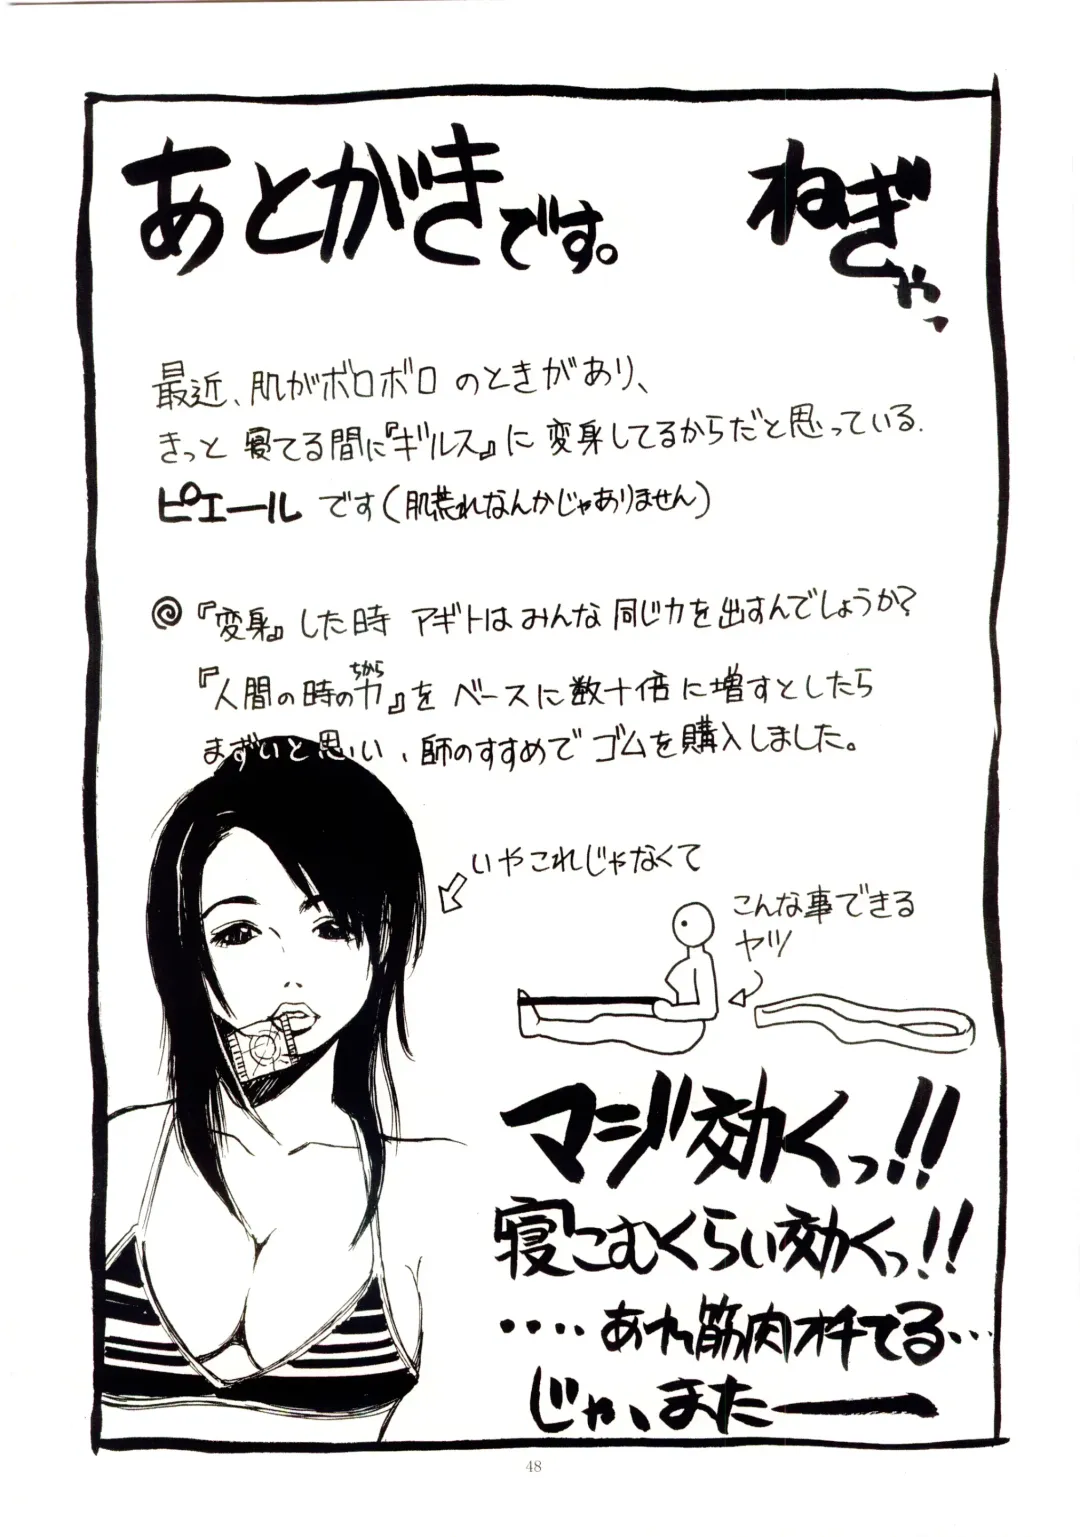 あとがきです。
ねぎゃっ
最近、肌がボロボロのときがあり、
きっと寝てる間に『ギルス』に変身してるからだと思っている.
ピエールです(肌荒れなんかじゃありません)
『変身』した時 アギトはみんな同じ力を出すんでしょうか?
ちから
『人間の時の力』をベースに数十倍に増すとしたら
まずいと思い、師のすすめでゴムを購入しました。
いやこれじゃなくて
こんな事できる
ヤツ
マジ効くっ!!
寝こむくらい効くっ!!
‥‥あれ筋肉オチてる…
じゃ、またー
48